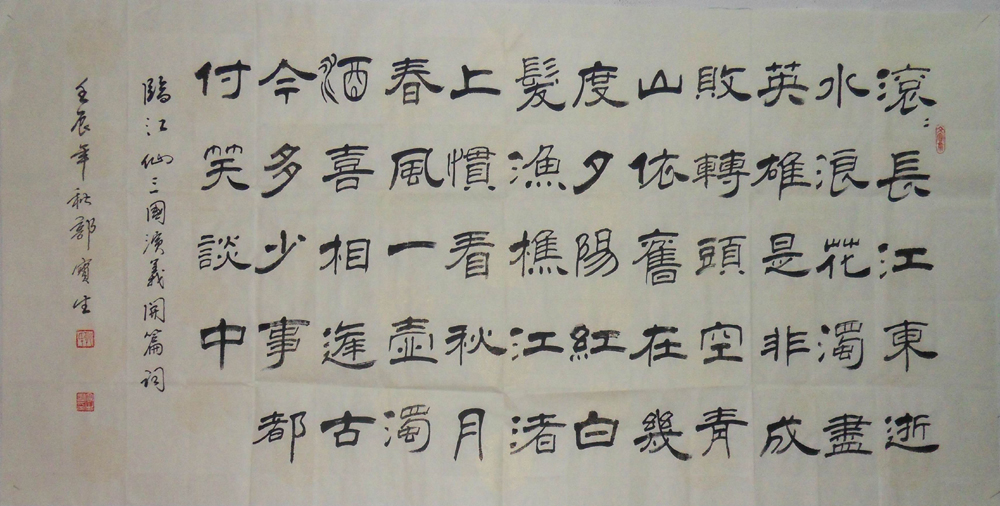 滾〻長江東逝
水浪花濁盡
英雄是非成
敗轉頭空青
山依舊在幾
度夕陽紅白
髮漁樵江渚
上慣看秋月
春風一壺濁
酒喜相逢古
今多少事都
付笑談中
臨江仙三國演義開篇詞
壬辰年秋寶生